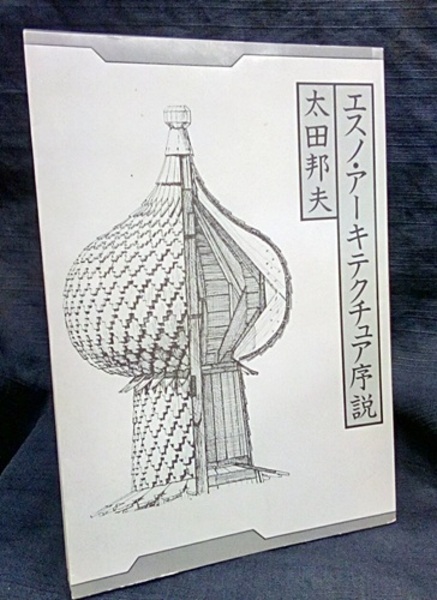 エスノ・アーキテクチュア序説
太田邦夫